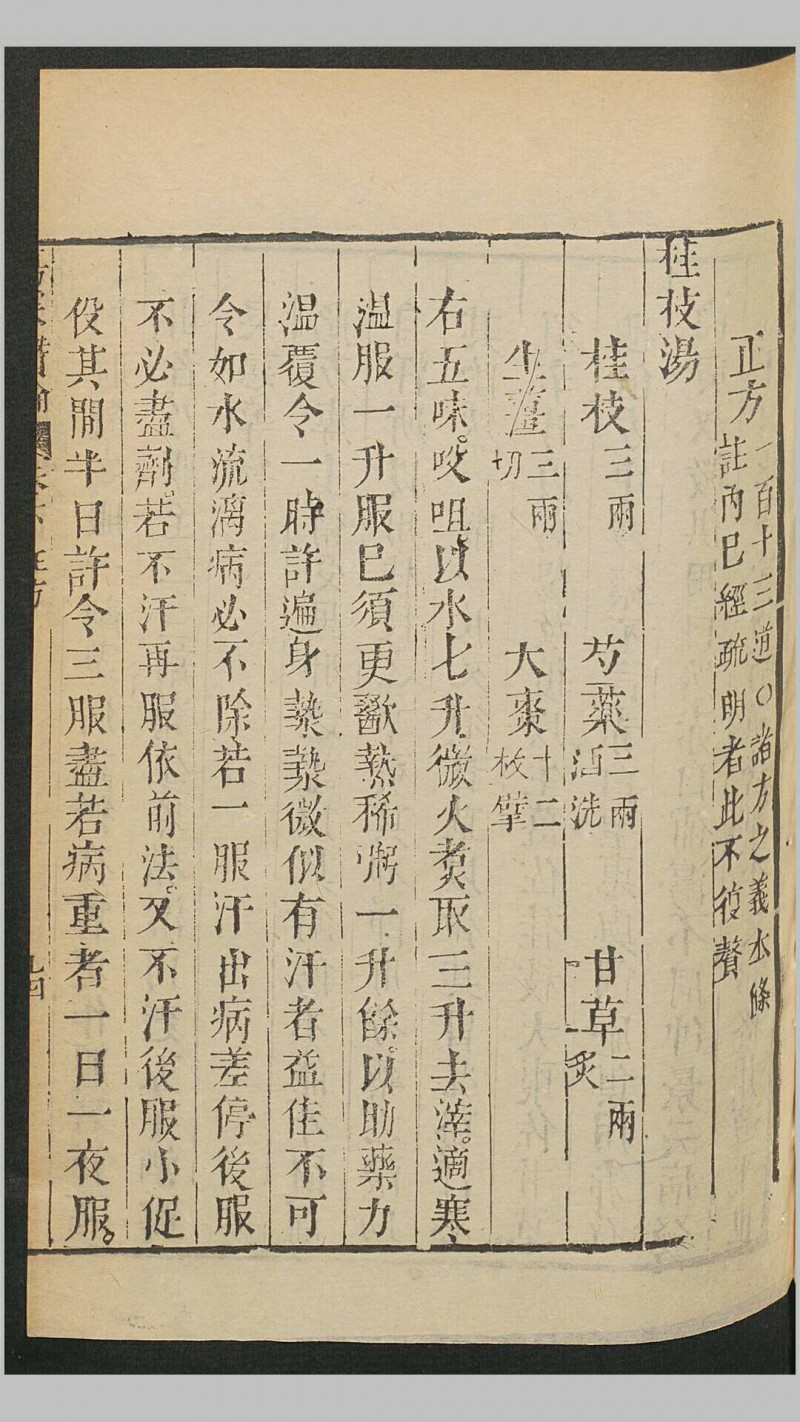 正方一百十三道○諸方之義水條註內已經疏明者此不復贅
桂枝湯
桂枝三兩 芍藥三兩酒洗 甘草二兩炙
生薑三兩切 大棗十二枚擘
右五味。㕮咀。以水七升。微火煑取三升。去滓。適寒
溫服一升。服已須更歠熱稀粥一升餘。以助藥力
溫覆令一時許遍身漐漐微似有汗者益佳不可
令如水流漓病必不除若一服汗出病差停後服
不必盡劑。若不汗再服依前法。又不汗後服小促
役其間半日許令三服盡若病重者一日一夜服。